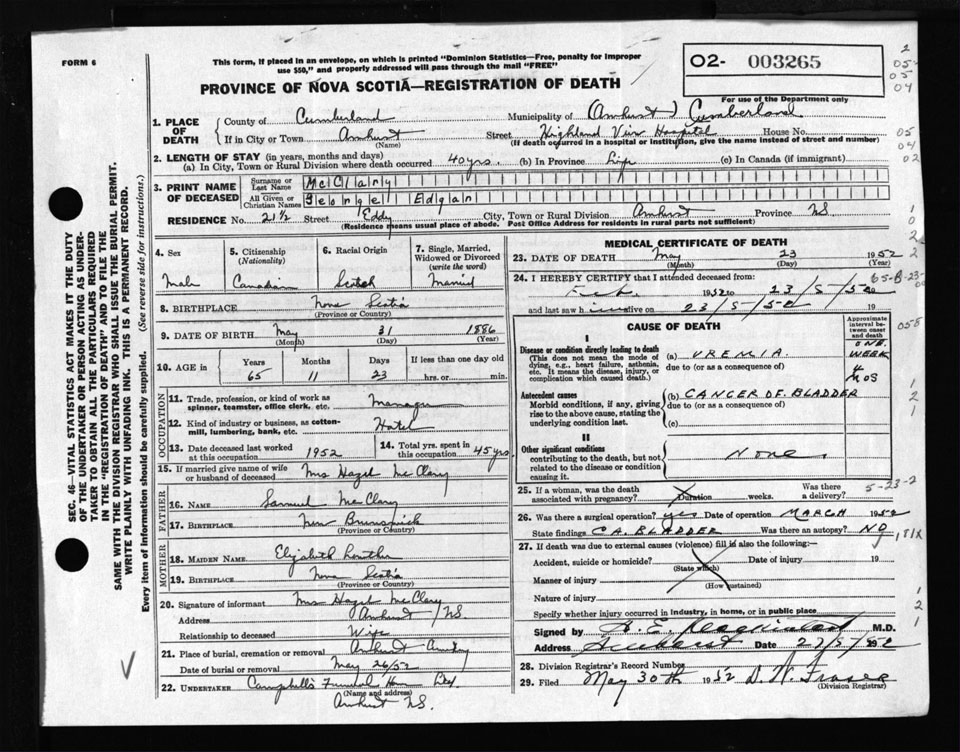 FORM 6
This form, if placed in an envelope, on which is printed "Dominion Statistics—Free, penalty for improper
use $50," and properly addressed will pass through the mail "FREE"
O2- 003265
PROVINCE OF NOVA SCOTIA—REGISTRATION OF DEATH
For use of the Department only
2
05-
05
04
1. PLACE OF DEATH
County of Cumberland Municipality of (Amherst) Cumberland
If in City or Town Amherst Street Highland View Hospital House No.
(Name) (If death occurred in a hospital or institution, give the name instead of street and number)
05
04
02
2. LENGTH OF STAY (in years, months and days)
(a) In City, Town or Rural Division where death occurred 40 yrs. (b) In Province Life (c) In Canada (if immigrant)
3. PRINT NAME OF DECEASED
Surname or Last Name McClary
All Given or Christian Names George Edgar
RESIDENCE No. 21½ Street Eddy City, Town or Rural Division Amherst Province NS
(Residence means usual place of abode. Post Office Address for residents in rural parts not sufficient)
1
0
2
2
4. Sex Male
5. Citizenship (Nationality) Canadian
6. Racial Origin Scotch
7. Single, Married, Widowed or Divorced (write the word) Married
8. BIRTHPLACE Nova Scotia
(Province or Country)
9. DATE OF BIRTH May 31 1886
(Month) (Day) (Year)
10. AGE in Years Months Days If less than one day old
65 11 23 hrs. or min.
OCCUPATION
11. Trade, profession, or kind of work as
spinner, teamster, office clerk, etc. Manager
12. Kind of industry or business, as cotton-
mill, lumbering, bank, etc. Hotel
13. Date deceased last worked
at this occupation 1952
14. Total yrs. spent in
this occupation 45 yrs.
15. If married give name of wife
or husband of deceased Mrs Hazel McClary
FATHER
16. NAME Samuel McClary
17. BIRTHPLACE New Brunswick
(Province or Country)
MOTHER
18. MAIDEN NAME Elizabeth
19. BIRTHPLACE Nova Scotia
(Province or Country)
20. Signature of informant Mrs Hazel McClary
Address Amherst NS
Relationship to deceased Wife
21. Place of burial, cremation or removal Amherst
Date of burial or removal May 26/52
22. UNDERTAKER Campbell's Funeral
(Name and address)
Amherst NS.
MEDICAL CERTIFICATE OF DEATH
23. DATE OF DEATH May 23 1952
(Month) (Day) (Year)
24. I HEREBY CERTIFY that I attended deceased from
65-B-23-
Feb. 1952 to 23/5/52 19
and last saw h im alive on 23/5/52 19
CAUSE OF DEATH
Approximate interval between onset and death
058
I
Disease or condition directly leading to death
(This does not mean the mode of
dying, e.g., heart failure, asthenia,
etc. It means the disease, injury, or
complication which caused death.)
(a) UREMIA. ONE WEEK
due to (or as a consequence of)
Antecedent causes
Morbid conditions, if any, giving
rise to the above cause, stating the
underlying condition last.
(b) CANCER OF BLADDER
due to (or as a consequence of)
(c)
1
2
1
II
Other significant conditions
contributing to the death, but not
related to the disease or condition
causing it.
None
25. If a woman, was the death
associated with pregnancy? Duration weeks. Was there
a delivery?
5-23-2
26. Was there a surgical operation? yes Date of operation MARCH 1952
State findings CA. BLADDER Was there an autopsy? NO
181X
27. If death was due to external causes (violence) fill in also the following:—
Accident, suicide or homicide? Date of injury 19
(State which)
Manner of injury
(How sustained)
Nature of injury
Specify whether injury occurred in industry, in home, or in public place
1
2
1
Signed by M.D.
Address Amherst Date 27/5/52
28. Division Registrar's Record Number
29. Filed May 30th 1952 D. W. Fraser
(Division Registrar)
SEC. 46—VITAL STATISTICS ACT MAKES IT THE DUTY
OF THE UNDERTAKER OR PERSON ACTING AS UNDER-
TAKER TO OBTAIN ALL THE PARTICULARS REQUIRED
IN THE "REGISTRATION OF DEATH" AND TO FILE THE
SAME WITH THE DIVISION REGISTRAR WHO SHALL ISSUE THE BURIAL PERMIT.
WRITE PLAINLY WITH UNFADING INK. THIS IS A PERMANENT RECORD.
Every item of information should be carefully supplied. (See reverse side for instructions.)